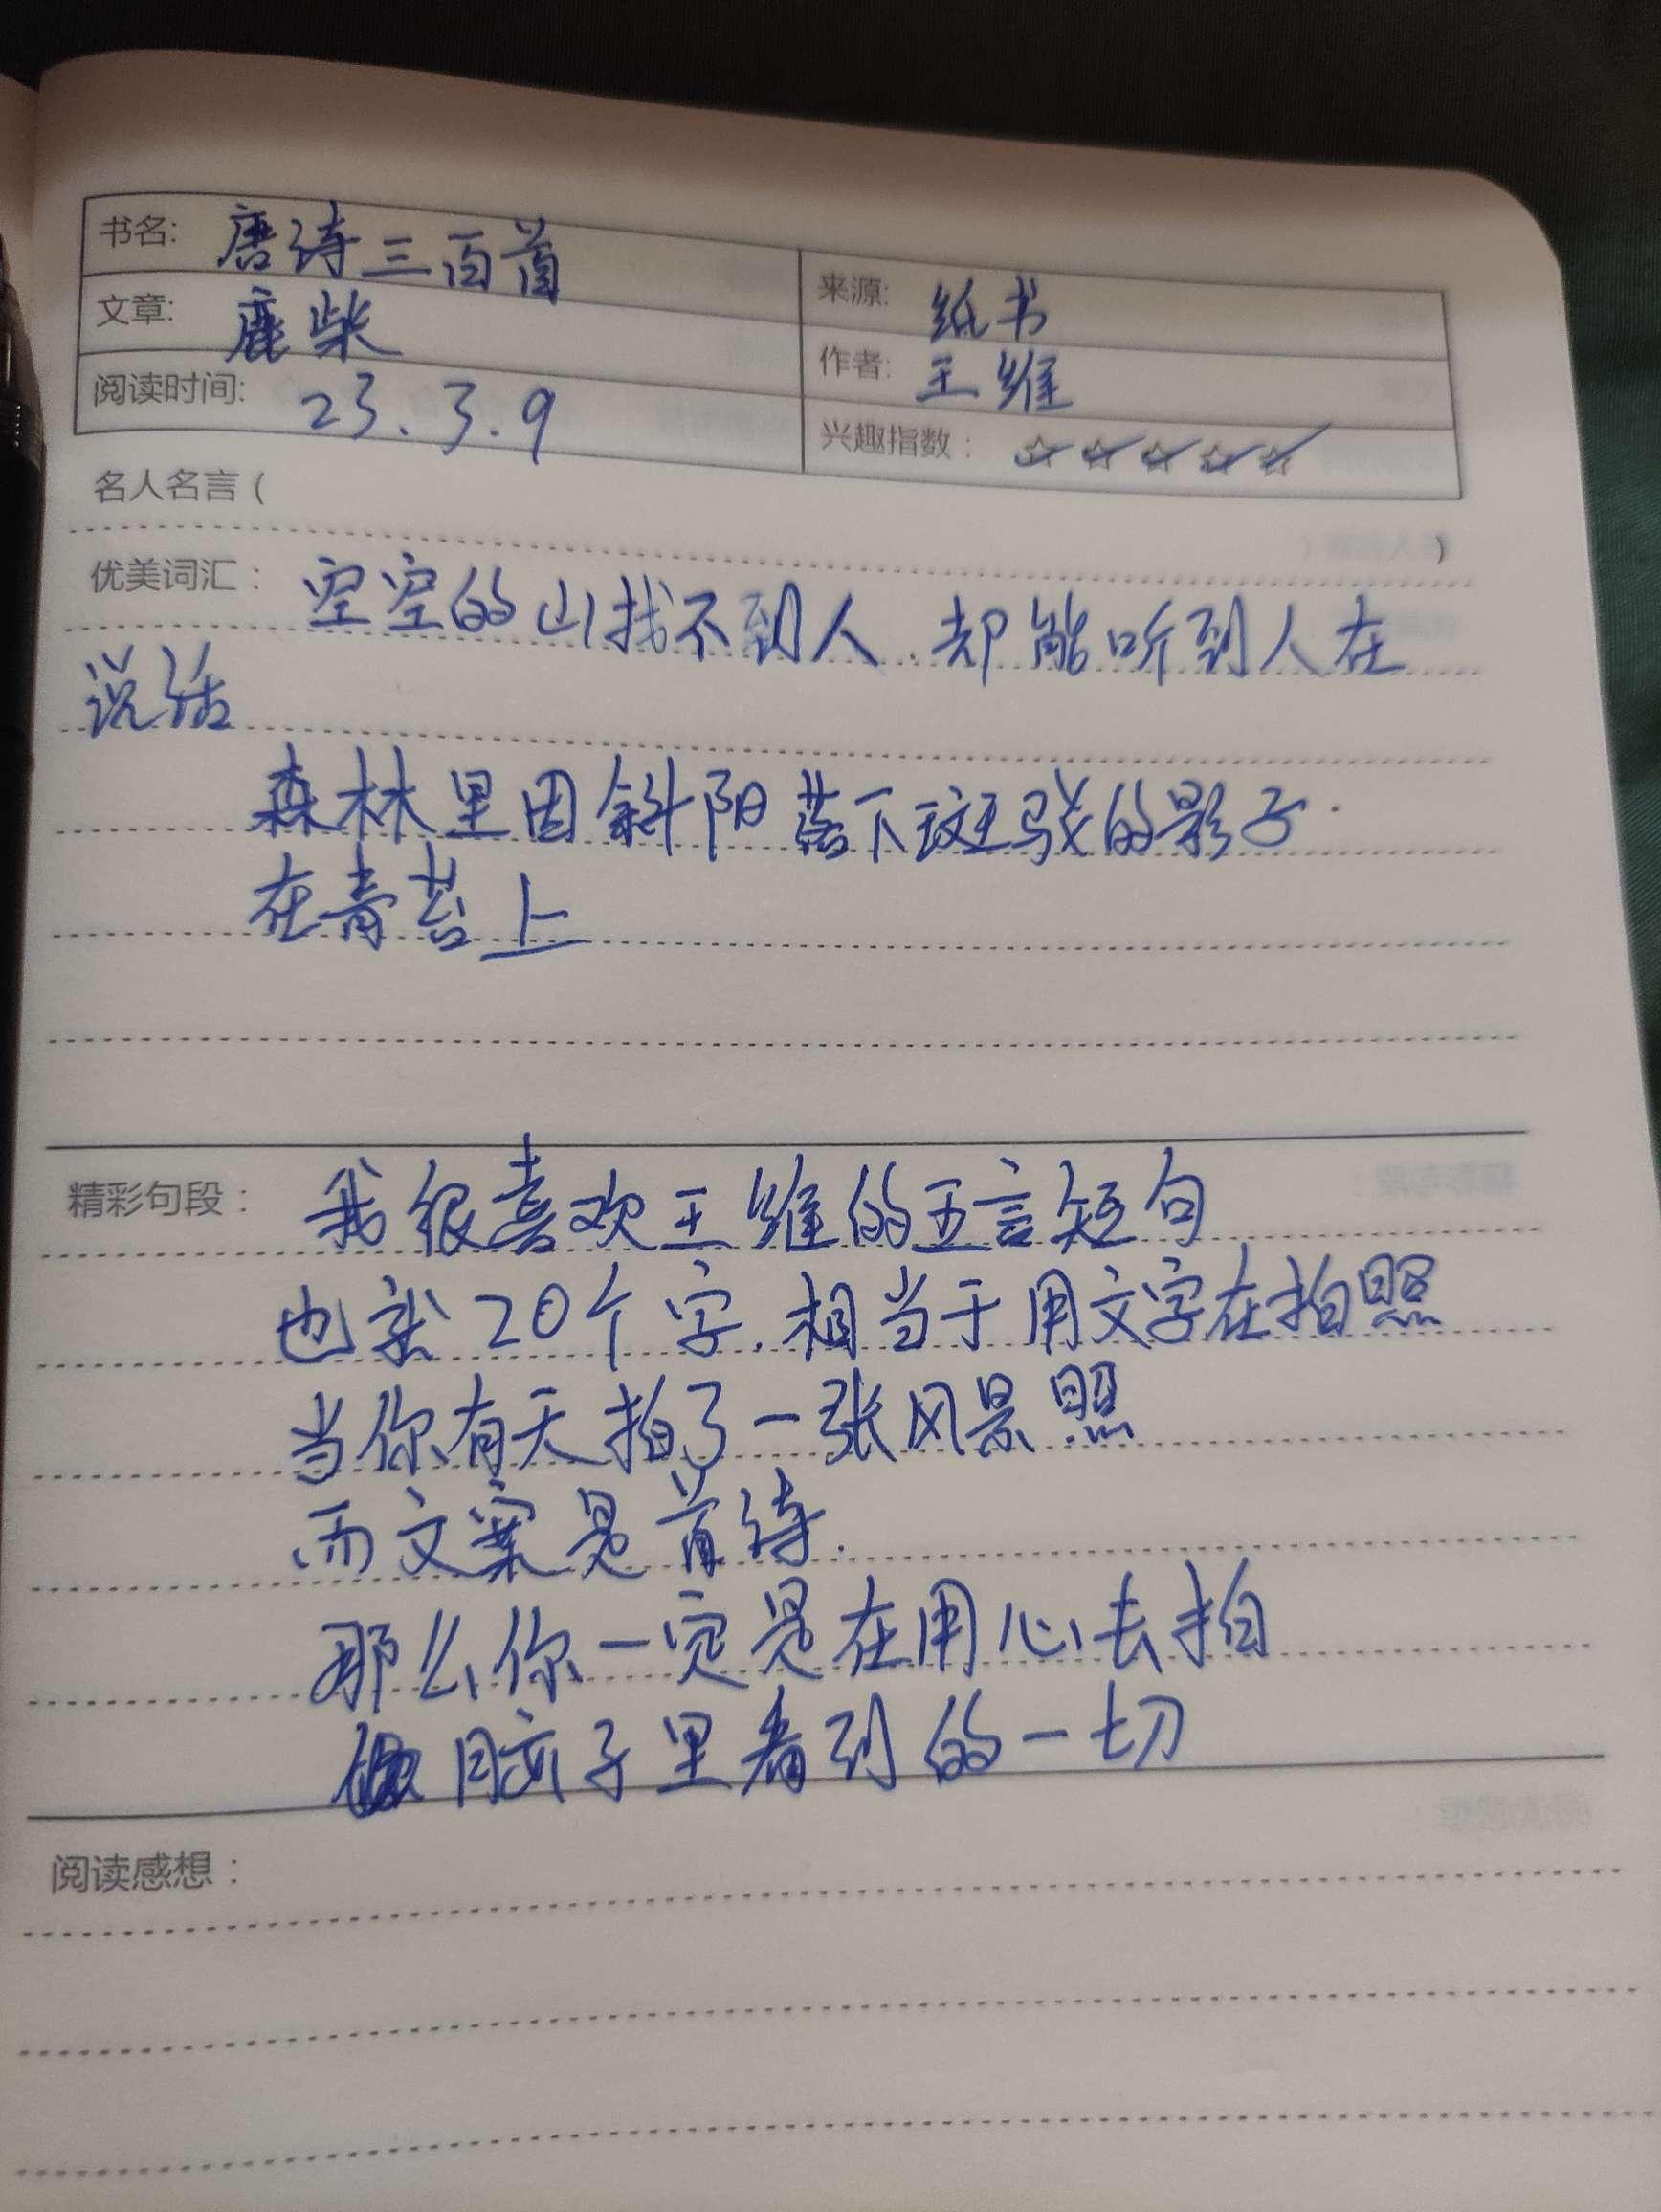 书名: 唐诗三百首
来源: 纸书
文章: 鹿柴
作者: 王维
阅读时间: 23.3.9
兴趣指数: ☆☆☆☆☆
名人名言( )
优美词汇: 空空的山找不到人.却能听到人在
说话
森林里因斜阳落下斑驳的影子.
在青苔上
精彩句段: 我很喜欢王维的五言短句
也就20个字.相当于用文字在拍照
当你有天拍了一张风景照
而文案是首诗.
那么你一定是在用心去拍
子里看到的一切
阅读感想: